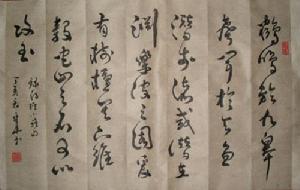 鶴鳴於九皋
聲聞於天魚
渚或潛在
淵樂彼之園爰
有樹檀其下維
穀它山之石可以
攻玉